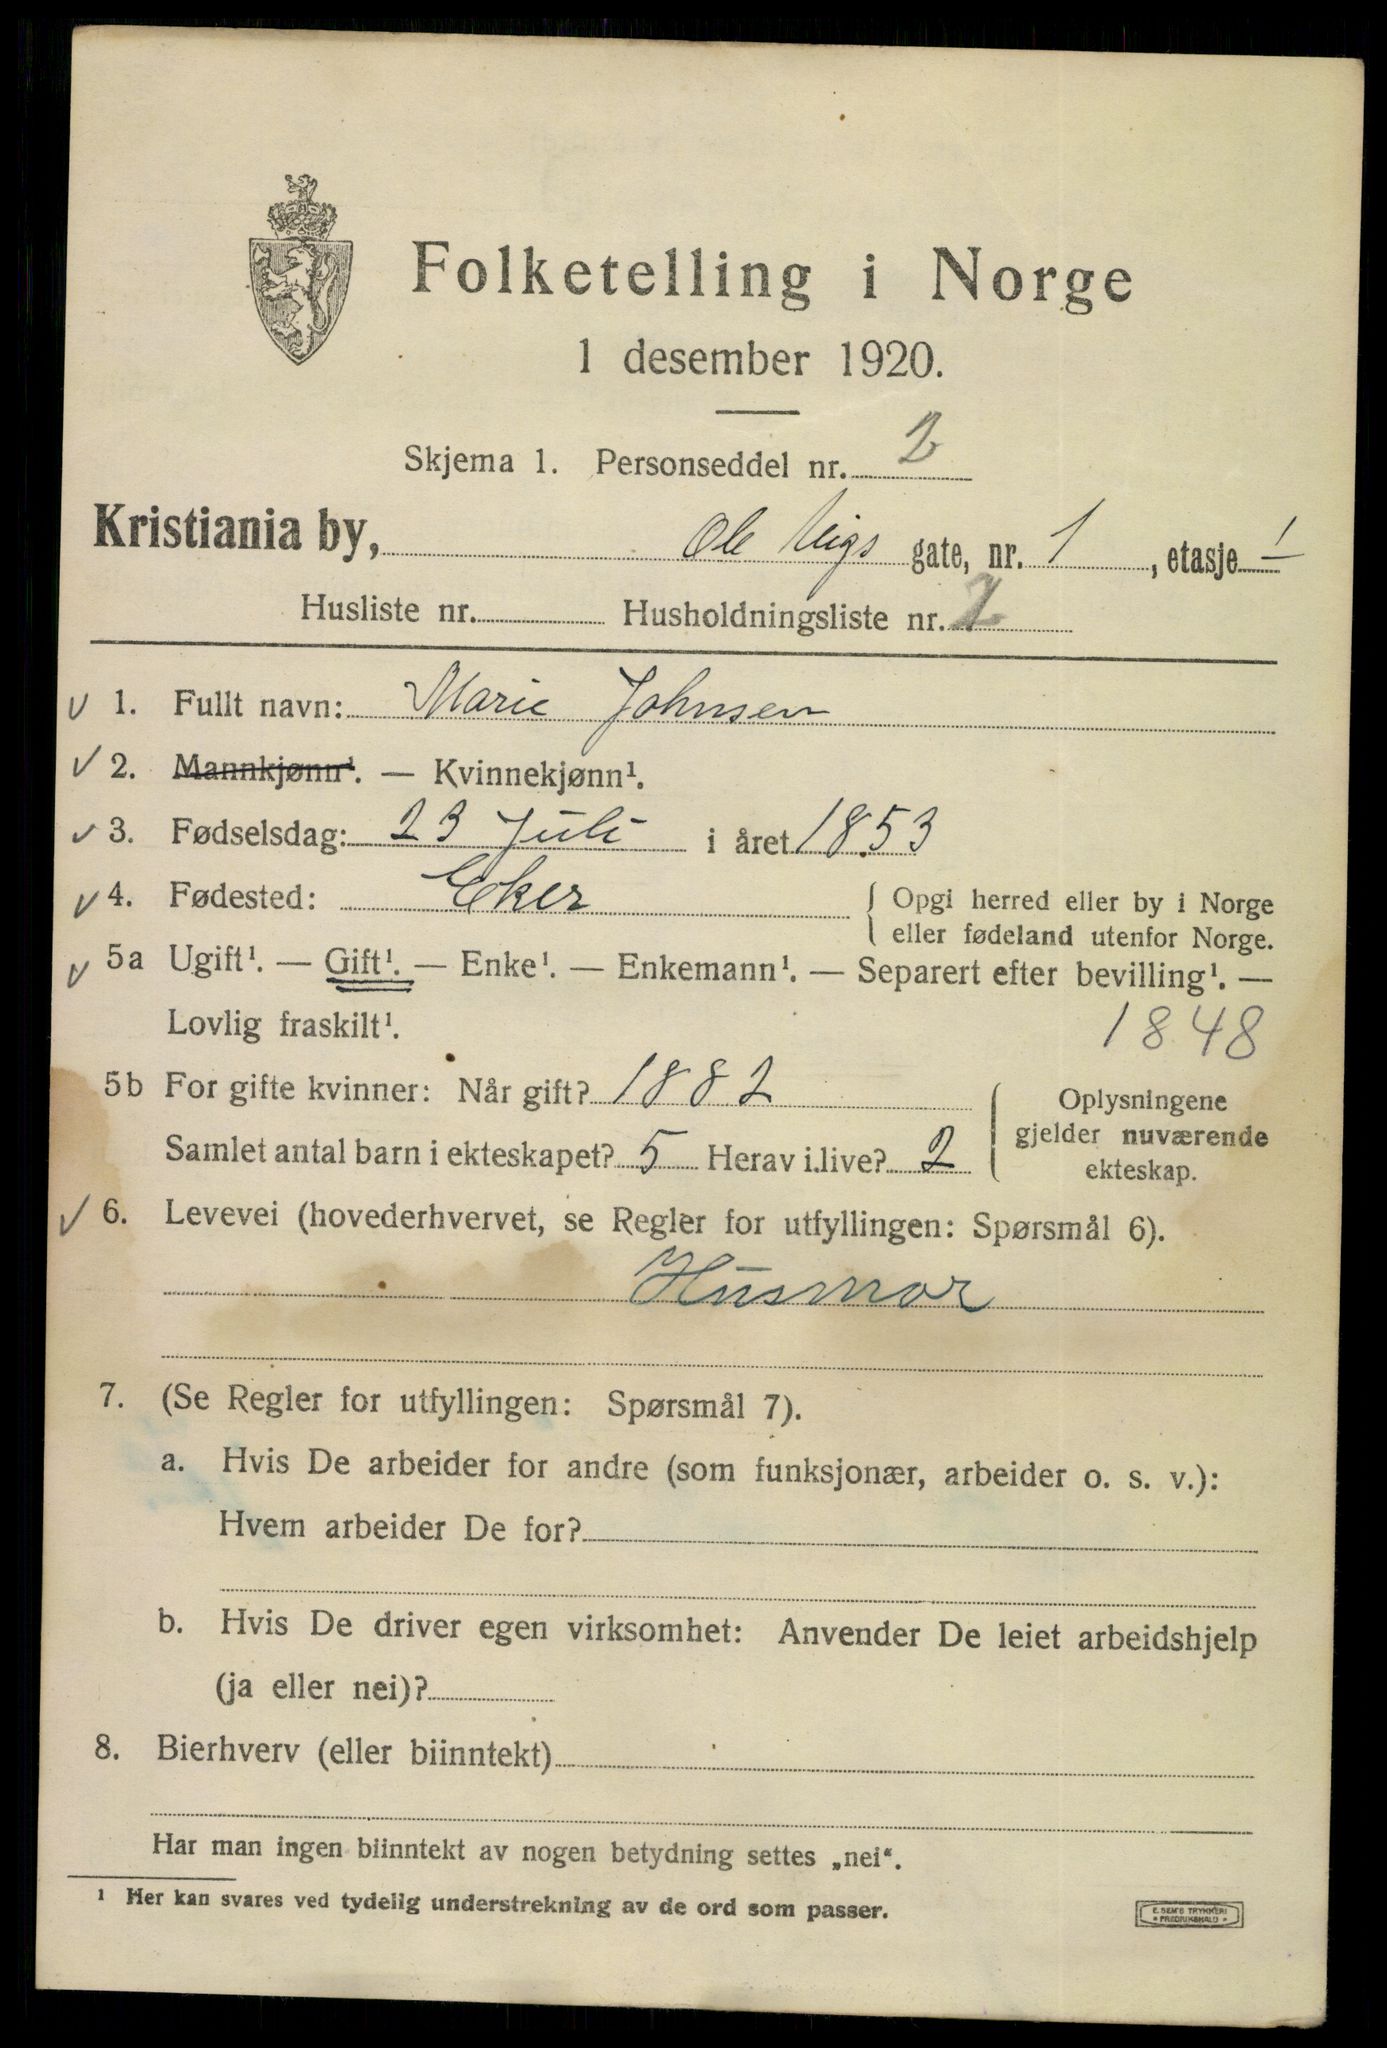 Folketelling i Norge
1 desember 1920.
Skjema 1. Personseddel nr. 2
Kristiania by, Ole Vigs gate, nr. 1, etasje 1
Husliste nr. Husholdningsliste nr. 2
1. Fullt navn: Marie Johnsen
2. Mannkjønn¹. — Kvinnekjønn¹.
3. Fødselsdag: 23 Juli i året 1853
4. Fødested: Eker { Opgi herred eller by i Norge
eller fødeland utenfor Norge.
5a Ugift¹. — Gift¹. — Enke¹. — Enkemann¹. — Separert efter bevilling¹. —
Lovlig fraskilt¹. 1848
5b For gifte kvinner: Når gift? 1882
Samlet antal barn i ekteskapet? 5 Herav i live? 2
{ Oplysningene
gjelder nuværende
ekteskap.
6. Levevei (hovederhvervet, se Regler for utfyllingen: Spørsmål 6).
Husmor
7. (Se Regler for utfyllingen: Spørsmål 7).
a. Hvis De arbeider for andre (som funksjonær, arbeider o. s. v.):
Hvem arbeider De for?
b. Hvis De driver egen virksomhet: Anvender De leiet arbeidshjelp
(ja eller nei)?
8. Bierhverv (eller biinntekt)
Har man ingen biinntekt av nogen betydning settes „nei“.
¹ Her kan svares ved tydelig understrekning av de ord som passer.
E. SEM'S TRYKKERI
• FREDRIKSHALD •